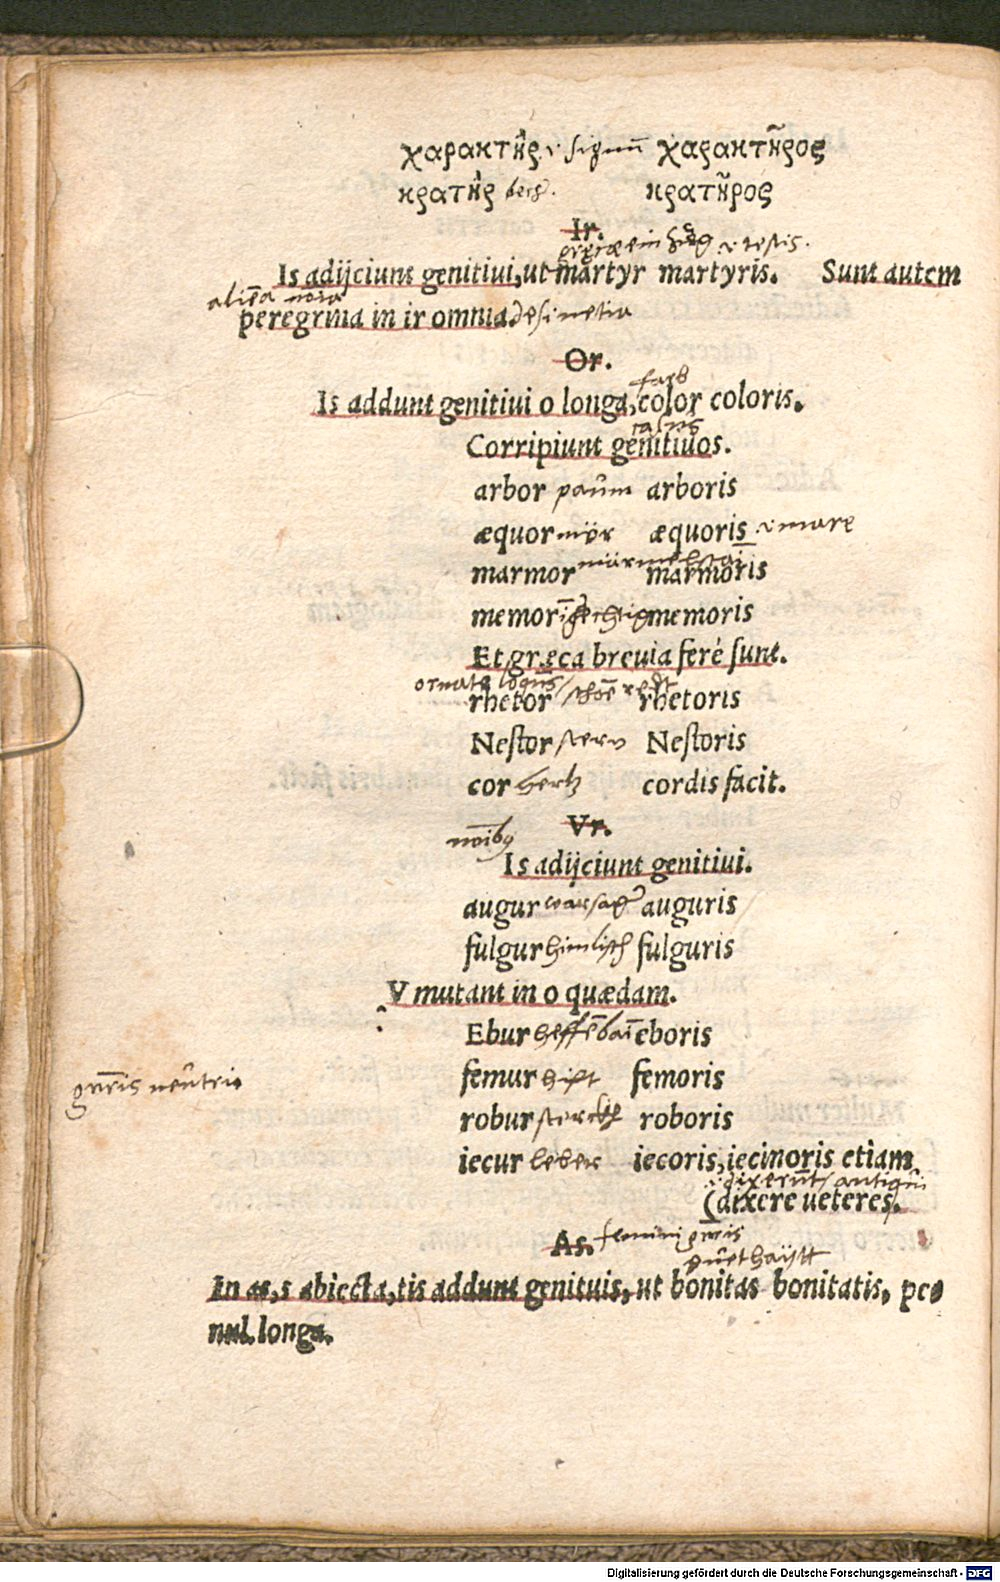 χαρακτὴρ χαρακτῆρος
κρατὴρ κρατῆρος
Ir.
Is adijciunt genitiui, ut martyr martyris. Sunt autem
peregrina in ir omnia desinētia
Or.
farb
Is addunt genitiui o longa, color coloris.
Corripiunt genitiuos.
arbor paūm arboris
æquor mör æquoris i. mare
marmor marmoris
memor memoris
Et græca breuia ferè sunt.
rhetor rhetoris
Nestor Nestoris
cor hertz cordis facit.
Vr.
Is adijciunt genitiui.
augur warsag auguris
fulgur himlisch fulguris
V mutant in o quædam.
Ebur eboris
gn̄ris neūtri
femur hift femoris
robur sterck roboris
iecur leber iecoris, iecinoris etiam
dixerūt antiqui
(dixere ueteres.
As. feminini gn̄ris
In as, s abiecta, tis addunt genituis, ut bonitas bonitatis, pe⸗
nul. longa.
Digitalisierung gefördert durch die Deutsche Forschungsgemeinschaft - DFG